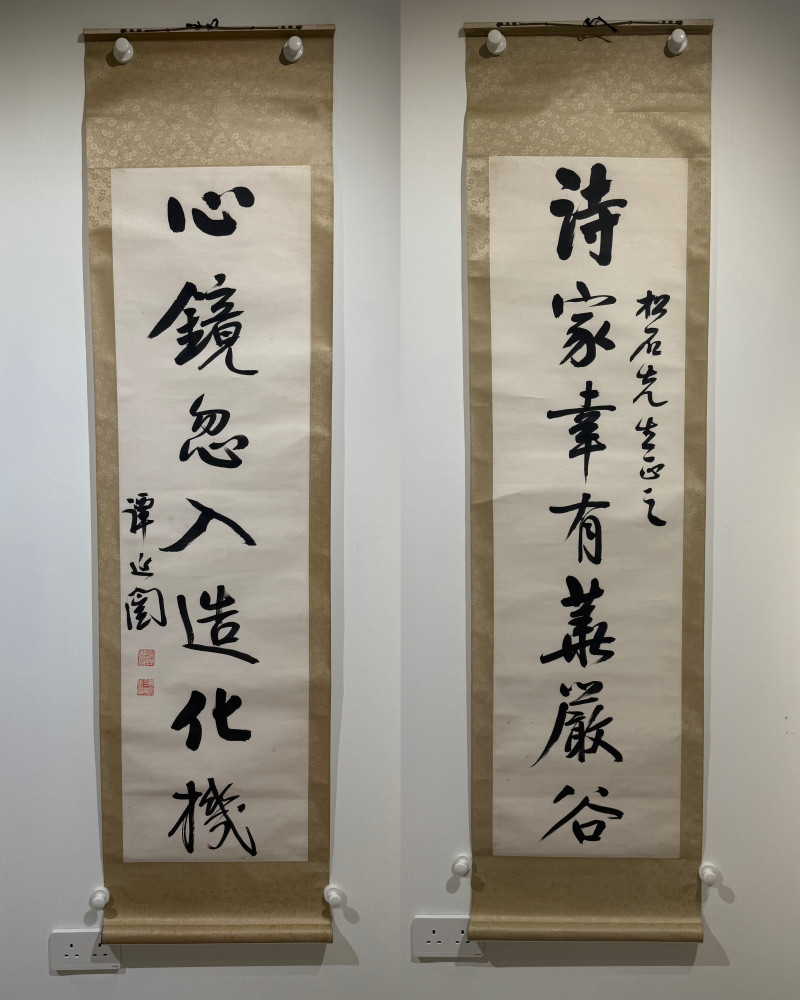 詩家幸有華嚴谷
松石先生正之
心鏡忽入造化機
譚延闓